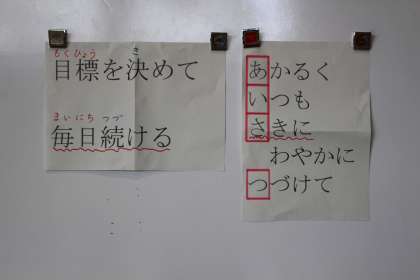 もくひょう き
目標を決めて
まいにち つづ
毎日続ける
あかるく
いつも
さきに
わやかに
つづけて